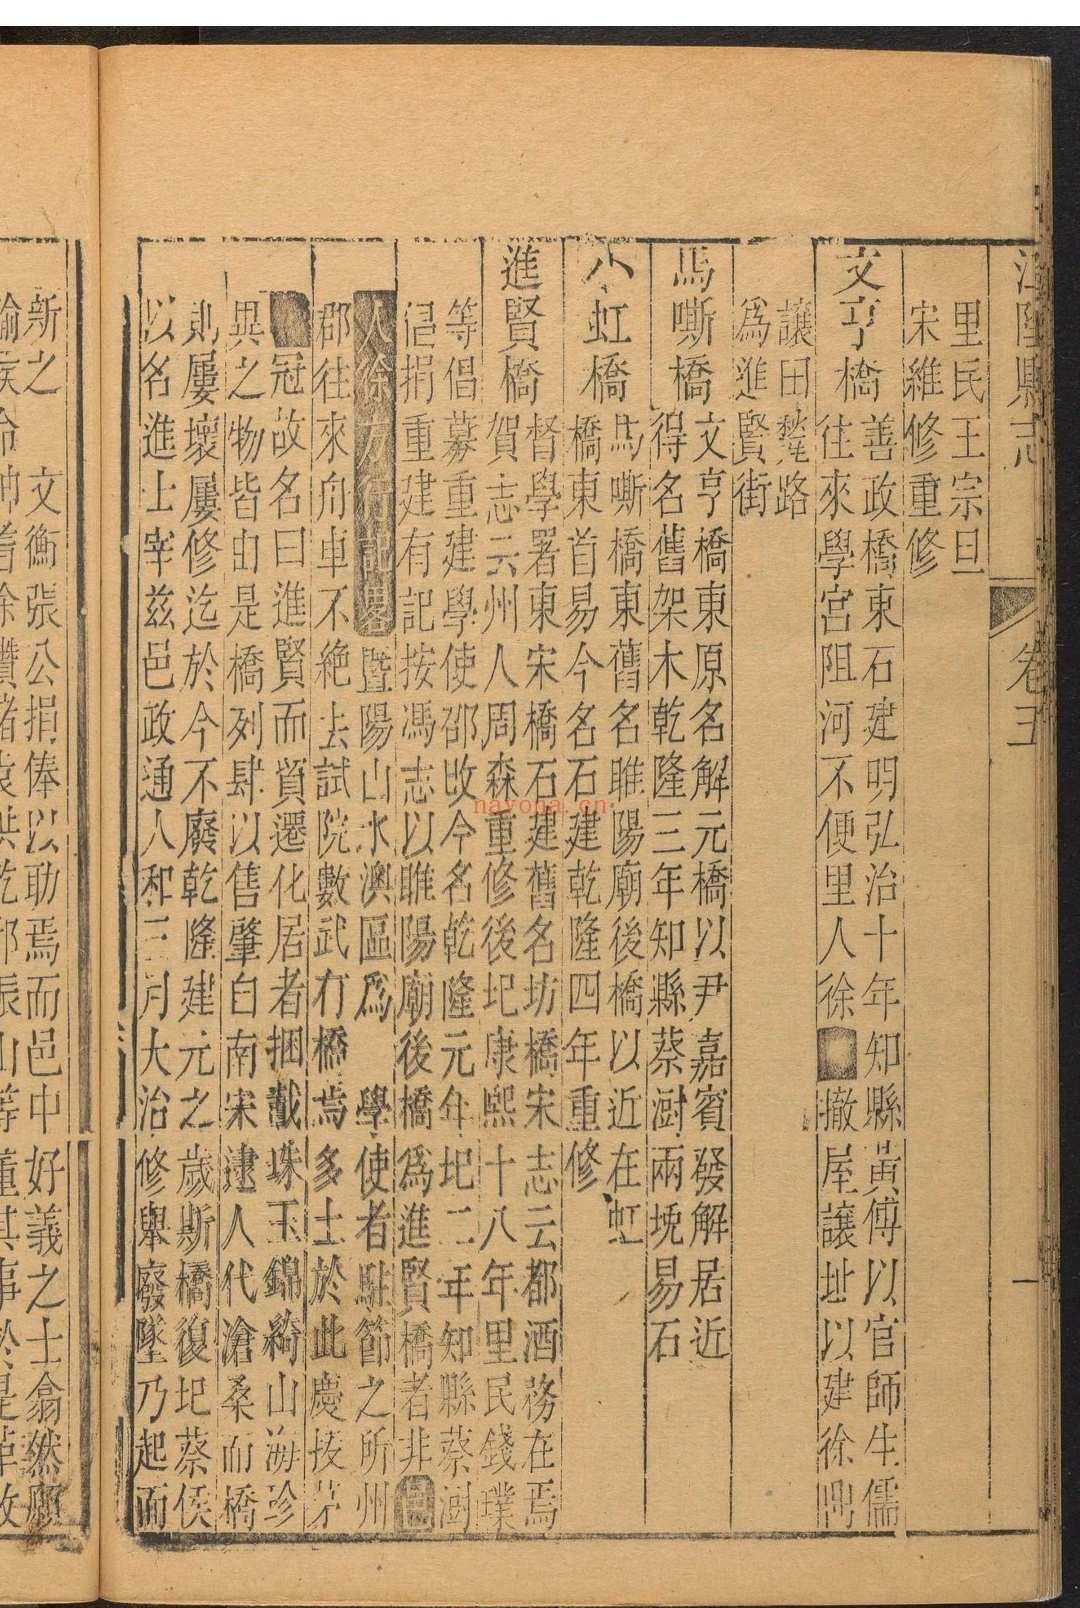 江陰縣志
卷五
一
里民王宗旦
宋維修重修
文亨橋
善政橋東石建明弘治十年知縣黃傅以官師生儒
往來學宮阻河不便里人徐 撤屋讓址以建徐
讓田甃路
為進賢街
馬嘶橋
文亨橋東原名解元橋以尹嘉賓發解居近
得名舊架木乾隆三年知縣蔡澍兩堍易石
小虹橋
馬嘶橋東舊名睢陽廟後橋以近在虹
橋東首易今名石建乾隆四年重修
進賢橋
督學署東宋橋石建舊名坊橋宋志云都酒務在焉
賀志云州人周森重修後圮康熙十八年里民錢璞
等倡募重建學使邵改今名乾隆元年圮二年知縣蔡澍
倡捐重建有記按馮志以睢陽廟後橋為進賢橋者非
人徐 記畧暨陽山水澳區為 學使者駐節之所州
郡往來舟車不絕去試院數武有橋焉多士於此慶拔茅
冠故名曰進賢而貿遷化居者捆載珠玉錦綺山海珍
異之物皆由是橋列肆以售肇自南宋逮人代滄桑而橋
則屢壞屢修迄於今不廢乾隆建元之歲斯橋復圮蔡侯
以名進士宰茲邑政通人和三月大治修舉廢墜乃起而
新之 文衡張公捐俸以助焉而邑中好義之士翕然願
nayona.cn